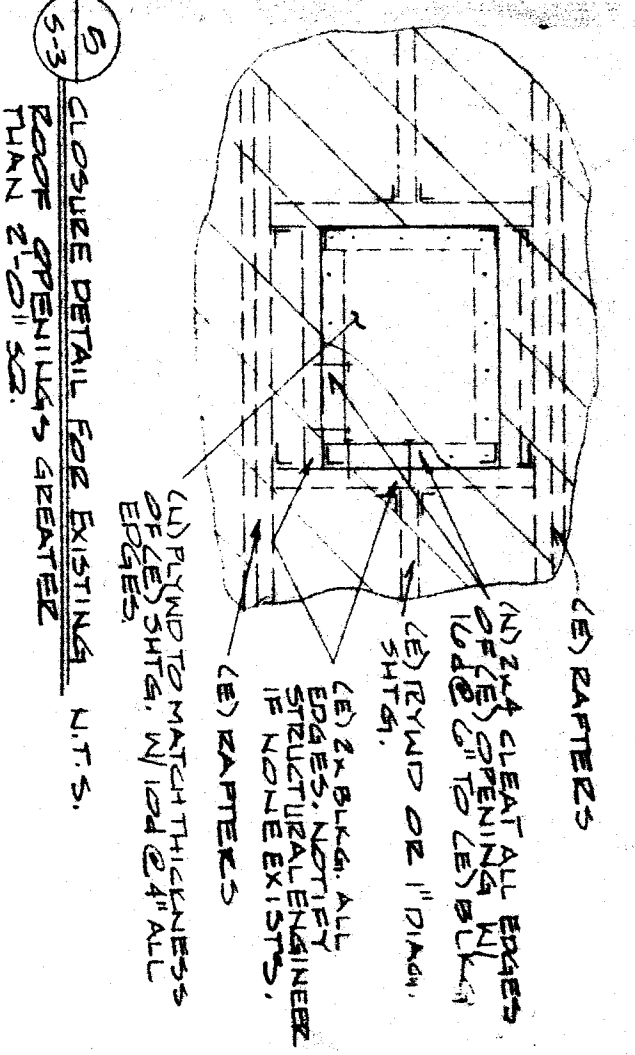 (E) RAFTERS
(N) 2x4 CLEAT ALL EDGES
OF (E) OPENING W/
16d @ 6" TO (E) BLKG
(E) PLYWD OR 1" DIAG.
SHTG.
(E) 2x BLKG. ALL
EDGES. NOTIFY
STRUCTURAL ENGINEER
IF NONE EXISTS.
(E) RAFTERS
(N) PLYWD TO MATCH THICKNESS
OF (E) SHTG. W/ 10d @ 4" ALL
EDGES.
5
S-3
CLOSURE DETAIL FOR EXISTING N.T.S.
ROOF OPENINGS GREATER
THAN 2'-0" SQ.